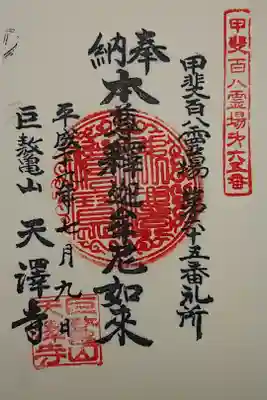 甲斐百八霊場第六五番
甲斐百八霊場第六十五番札所
奉納
本尊釋迦牟尼如来
平成十六年七月九日
巨鼇山 天澤寺
巨鼇山
天澤寺